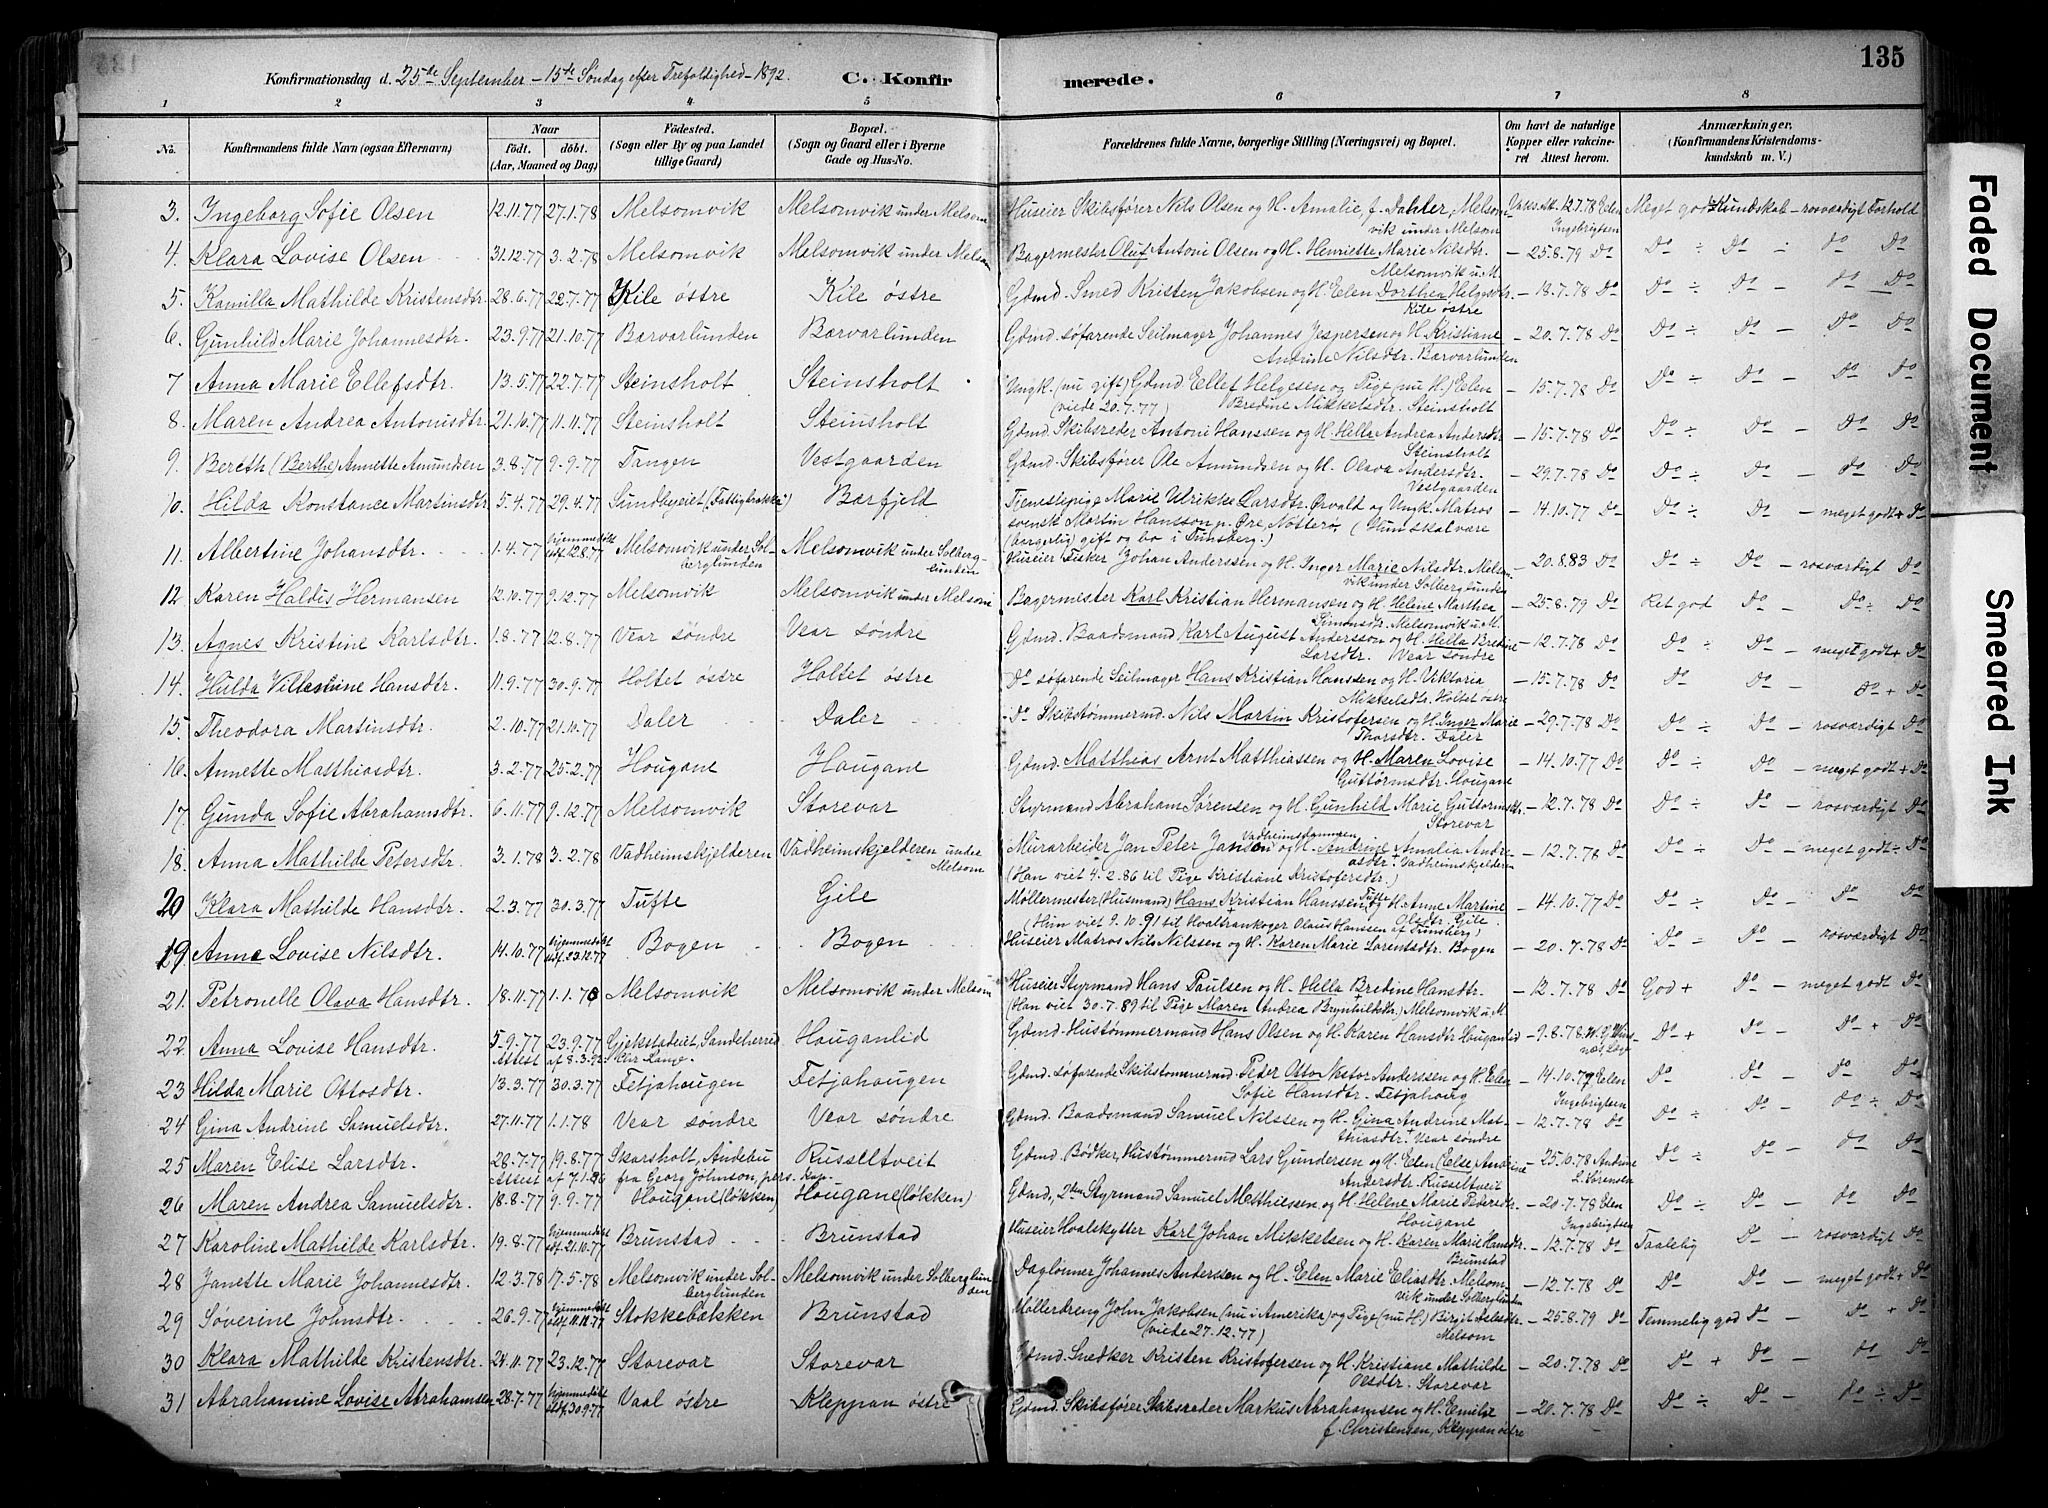 135
Konfirmationsdag d. 25de September – 15de Søndag efter Trefoldighed – 1892. C. Konfirmerede.
1 2 3 4 5 6 7 8
No. Konfirmandens fulde Navn (ogsaa Efternavn) Naar født. døbt. (Aar, Maaned og Dag) Fødested. (Sogn eller By og paa Landet tillige Gaard) Bopæl. (Sogn og Gaard eller i Byerne Gade og Hus-No. Forældrenes fulde Navne, borgerlige Stilling (Næringsvei) og Bopæl. Om havt de naturlige Kopper eller vakcineret Attest herom. Anmærkninger. (Konfirmandens Kristendomskundskab m. V.)
3. Ingeborg Sofie Olsen 12.11.77 27.1.78 Melsomvik Melsomvik under Melsom Huseier Skibsfører Nils Olsen og H. Amalie f. Dahler, Melsomvik under Melsom Vaks. Att. 12.7.78 Elen Ingebrigtsen Meget god Kundskab – rosværdigt Forhold
4. Klara Lovise Olsen 31.12.77 3.2.78 Melsomvik Melsomvik under Melsom Bagermester Oluf Antoni Olsen og H. Henriette Marie Nilsdtr. Melsomvik u. M. – 25.8.79 Do Do ÷ Do ÷ Do Do
5. Kamilla Mathilde Kristensdtr. 28.6.77 22.7.77 Kile østre Kile østre Gdmd. Smed Kristen Jakobsen og H. Elen Dorthea Helgesdtr. Kile østre – 19.7.78 Do Do ÷ Do – Do Do
6. Gunhild Marie Johannesdtr. 23.9.77 21.10.77 Barvarlunden Barvarlunden Gdmd. søfarende Seilmager Johannes Jespersen og H. Kristiane Andrine Nilsdtr. Barvarlunden – 20.7.78 Do Do ÷ Do – Do Do
7. Anna Marie Ellefsdtr. 13.5.77 22.7.77 Steinsholt Steinsholt Ungk. (nu gift) Gdmd Ellef Helgesen og Pige (nu H.) Elen (viede 20.7.77) Bredine Mikkelsdtr. Steinsholt – 15.7.78 Do Do ÷ Do – Do Do
8. Maren Andrea Antonisdtr. 21.10.77 11.11.77 Steinsholt Steinsholt Gdmd. Skibsreder Antoni Hanssen og H. Hella Andrea Andersdtr Steinsholt – 15.7.78 Do Do ÷ Do – Do Do
9. Bereth (Berthe) Annette Amundsen 3.8.77 9.9.77 Tangen Vestgaarden Gdmd. Skibsfører Ole Amundsen og H. Olava Andersdtr. Vestgaarden – 29.7.78 Do Do ÷ Do – Do Do
10. Hilda Konstance Martinsdtr 5.4.77 29.4.77 Sundbyeiet (Fattigbrakka) Barfjeld Tjenestepige Marie Ulrikke Larsdtr. Ørvald og Ungk. Matros svensk Martin Hansson p. Øre, Nøtterø. (Hun skal være (borgelig) gift og bo i Tunsberg.) – 14.10.77 Do Do ÷ Do – meget godt + Do
11. Albertine Johansdtr. 1.4.77 hjemmedøbt stdf. 12.8.77 Melsomvik under Solberglunden Melsomvik under Solberglunden Huseier Fisker Johan Anderssen og H. Inger Marie Nilsdtr. Melsomvik under Solberglunden – 20.8.83 Do Do ÷ Do – rosværdigt Do
12 Karen Haldis Hermansen 12.10.77 9.12.77 Melsomvik Melsomvik under Melsom Bagermester Karl Kristian Hermansen og H. Helene Marthea Simonsdtr. Melsomvik u. M. – 25.8.79 Do Ret god Do – Do ÷ Do
13. Agnes Kristine Karlsdtr. 1.8.77 12.8.77 Vear søndre Vear søndre Gdmd. Baadsmand Karl August Andersson og H. Hella Bredine Larsdtr. Vear søndre – 12.7.78 Do Do ÷ Do – meget godt + Do
14. Hulda Villastine Hansdtr. 11.9.77 30.9.77 Holtet østre Holtet østre Do søfarende Seilmager Hans Kristian Hanssen og H. Viktoria Mikkelsdtr. Holtet østre – 15.7.78 Do Do Do – Do + Do
15. Theodora Martinsdtr. 2.10.77 21.10.77 Daler Daler Do Skibstømmermd. Nils Martin Kristofersen og H. Inger Marie Thorsdtr. Daler – 29.7.78 Do Do ÷ Do – rosværdigt Do
16. Annette Matthiasdtr. 3.2.77 25.2.77 Hougane Hougane Gdmd. Matthias Arnt Matthiassen og H. Maren Lovise Guttormsdtr. Hougane – 14.10.77 Do Do ÷ Do – meget godt + Do
17. Gunda Sofie Abrahamsdtr. 6.11.77 9.12.77 Melsomvik Storevar Styrmand Abraham Sørensen og H. Gunhild Marie Guttormsdtr. Storevar – 12.7.78 Do Do ÷ Do – rosværdigt Do
18. Anna Mathilde Petersdtr. 3.1.78 3.2.78 Vadheimskjelderen Vadheimskjelderen under Melsom Murarbeider Jan Peter Janson Vadheimsdammen og H. Andrine Amalia Andreasdtr + Vadheimskjelderen (Han viet 4.2.86 til Pige Kristiane Kristofersdtr.) – 12.7.78 Do Do ÷ Do – meget godt ÷ Do
20 Klara Mathilde Hansdtr. 2.3.77 30.3.77 Tufte Gile Møllermester (Husmand) Hans Kristian Hanssen, Tufte og H. Anne Martine Olsdtr. Gile (Hun viet 9.10.91 til Hvaltrankoger Olaus Hanssen af Tunsberg) – 14.10.77 Do Do ÷ Do – Do Do
19. Anna Lovise Nilsdtr. 14.10.77 hjemmedøbt stdf. 23.12.77 Bogen Bogen Huseier Matros Nils Nilssen og H. Karen Marie Lorentsdtr. Bogen – 20.7.78 Do Do ÷ Do – rosværdigt Do
21. Petronelle Olava Hansdtr. 18.11.77 1.1.78 Melsomvik Melsomvik under Melsom Huseier Styrmand Hans Paulsen og H. Hella Bredine Hansdtr. (Han viet 30.7.89 til Pige Maren Andrea Brynhilksdtr.) Melsomvik u. M. – 12.7.78 Do God + Do – meget godt Do
22. Anna Lovise Hansdtr. 5.9.77 23.9.77 Attest af 8.3.92 Gjekstadeiet, Sandeherred Houganlid Gdmd. Hustømmermand Hans Olsen og H. Karen Hansdtr Houganlid – 9.8.78 Do + Do – Do + Do
23 Hilda Marie Ottosdtr. 13.3.77 30.3.77 Fetjahaugen Fetjahaugen Gdmd. søfarende Skibstømmermd. Peder Otto Nestor Anderssen og H. Elen Sofie Hansdtr. Fesjahoug – 14.10.77 Elen Ingebrigtsen Do Do – Do Do
24 Gina Andrine Samuelsdtr. 27.11.77 1.1.78 Vear søndre Vear søndre Gdmd. Baadsmand Samuel Nilssen og H. Gina Andrine Matthiasdtr + Vear søndre – 12.7.78 Do Do ÷ Do – Do ÷ Do
25 Maren Elise Larsdtr. 28.7.77 19.8.77 Attest af 7.1.86 fra Georg Johnson, pers. Kap. Skarsholt, Andebu Russeltveit Gdmd. Bødker, Hustømmermd Lars Gundersen og H. Elen (Else) Andrine Andersdtr. Russeltveit – 25.10.78 Andrine L. Sørensen Do ÷ Do – Do Do
26 Maren Andrea Samuelsdtr. 18.8.77 9.9.77 Hougane (Løkken) Hougane (Løkken) Gdmd, 2den Styrmand Samuel Matthiessen og H. Helene Marie Pedersdtr Hougane – 20.7.78 Elen Ingebrigtsen Do ÷ Do – Do Do
27 Karoline Mathilde Karlsdtr. 19.8.77 hjemmedøbt stdf. 21.10.77 Brunstad Brunstad Huseier Hvalskytter Karl Johan Mikkelsen og H. Karen Marie Hansdtr. Brunstad – 12.7.78 Do Taalelig Do – rosværdigt Do
28 Janette Marie Johannesdtr. 12.3.78 17.5.78 Melsomvik under Solberglunden Melsomvik under Solberglunden Daglønner Johannes Anderssen og H. Elen Marie Eliasdtr. Melsomvik under Solberglunden – 12.7.78 Do Do Do – meget godt + Do
29 Søverine Johnsdtr. 26.9.77 hjemmedøbt stdf. 11.12.77 Stokkebakken Brunstad Møllerdreng John Jakobsen (nu i Amerika) og Pige (nu H) Birgit Aslesdtr. (viede 27.12.77) Melsom – 25.8.79 Do Temmelig god Do – Do + Do
30 Klara Mathilde Kristensdtr. 24.11.77 23.12.77 Storevar Storevar Gdmd. Snedker Kristen Kristofersen og H. Kristiane Mathilde Olsdtr. Storevar – 20.7.78 Do Do + Do – Do Do
31 Abrahamine Lovise Abrahamsen 28.7.77 hjemmedøbt stdf. 30.9.77 Vaal østre Kleppan østre Gdmd. Skibsfører Skibsreder Markus Abrahamsen og H. Emilie f. Christensen, Kleppan østre – 20.7.78 Do Do ÷ Do – Do ÷ Do
Faded Document
Smeared Ink